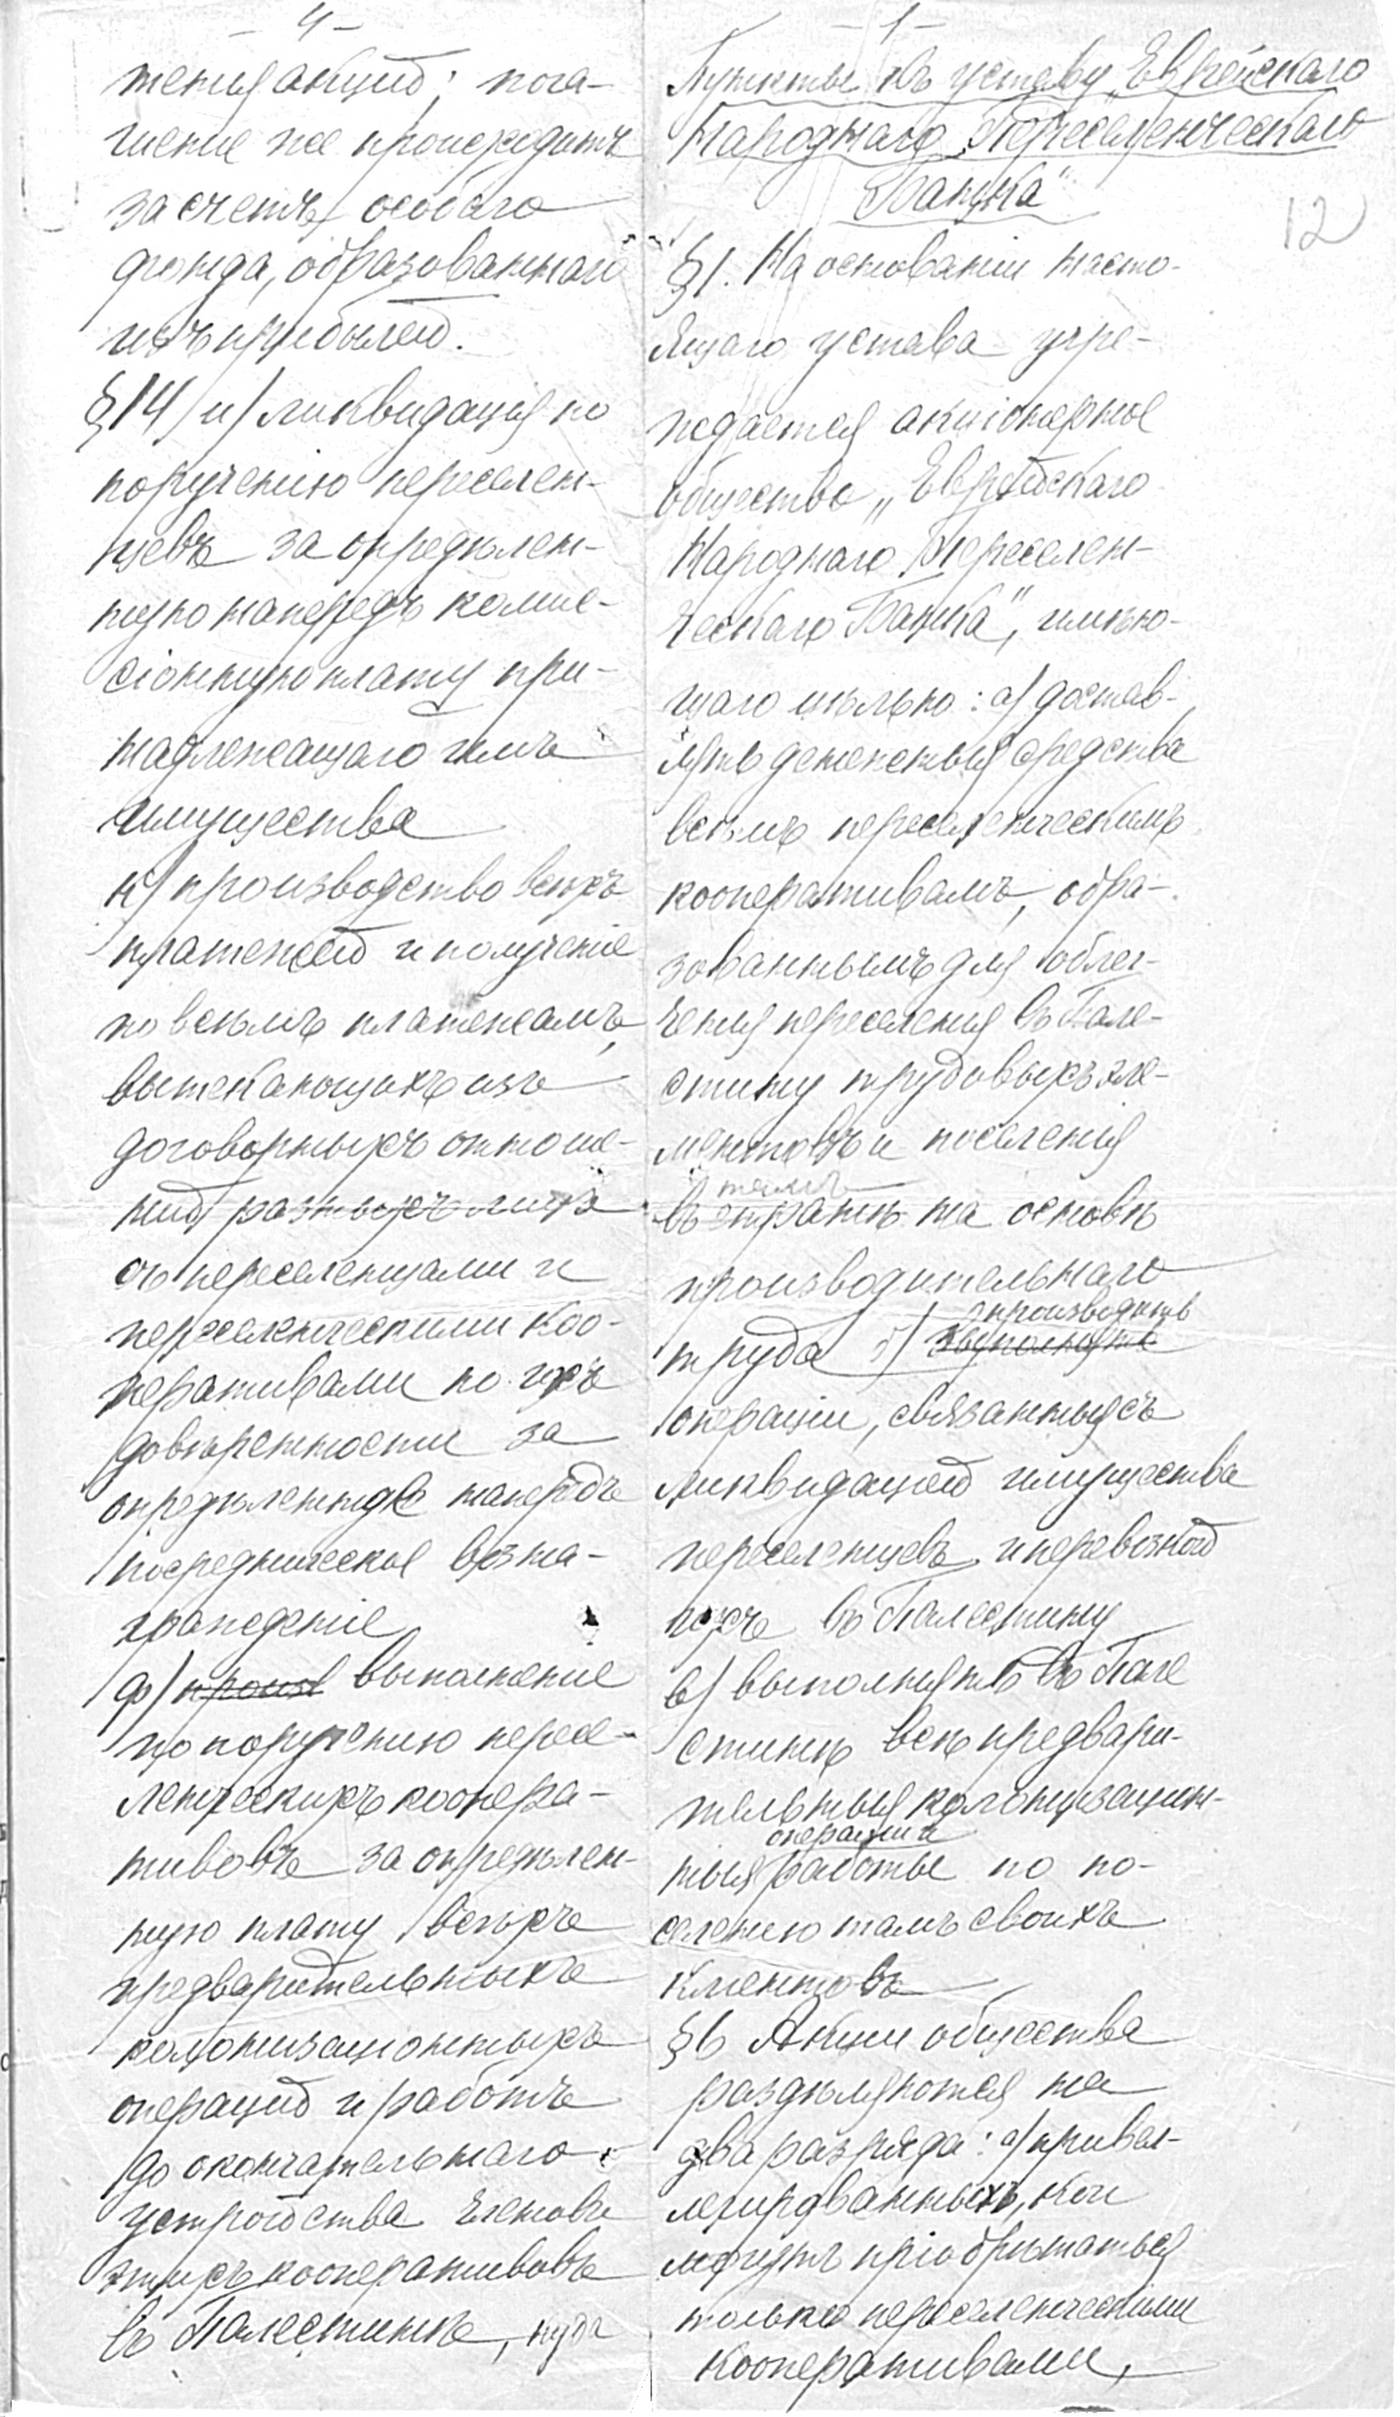 – 4 –
женія акцій; пога-
шеніе же происходитъ
за счетъ особаго
фонда, образованнаго
изъ прибылей.
§14 и) ликвидація по
порученію переселен-
цевъ за опредѣлен-
ную напередъ комис-
сіонную плату при-
надлежащаго имъ
имущества
к) производство всѣхъ
платежей и полученіе
по всѣмъ платежамъ,
вытекающихъ изъ
договорныхъ отноше-
ній разныхъ лицъ
съ переселенцами и
переселенческими коо-
перативами по ихъ
довѣренности за
опредѣленное напередъ
посредническое возна-
гражденіе
ф) произв выполненіе
по порученію пересе-
ленческихъ коопера-
тивовъ за опредѣлен-
ную плату всѣхъ
предварительныхъ
колонизаціонныхъ
операцій и работъ
до окончательнаго
устройства членовъ
этихъ кооперативовъ
въ Палестинѣ, куда
– 1 –
Пункты къ уставу „Еврейскаго
Народнаго Переселенческаго
Банка"
12
§1. На основаніи насто-
ящаго устава учре-
ждается акціонерное
общество „Еврейскаго
Народнаго Переселен-
ческаго Банка", имѣю-
щаго цѣлью: а) достав-
лять денежныя средства
всѣмъ переселенческимъ
кооперативамъ, обра-
зованнымъ для облег-
ченія переселенія въ Пале-
стину трудовыхъ эле-
ментовъ и поселенія
тамъ
въ странѣ на основѣ
производительнаго
производить
труда б) выполнять
операціи, связанныя съ
ликвидаціей имущества
переселенцевъ и перевозкой
ихъ въ Палестину
в) выполнять въ Пале
стинѣ всѣ предвари-
тельныя колонизацион-
операціи
ныя работы по по-
селенію тамъ своихъ
клиентовъ
§6 Акціи общества
раздѣляются на
два разряда: а) привел-
легированныхъ, кои
могутъ пріобрѣтаться
только переселенческими
кооперативами,